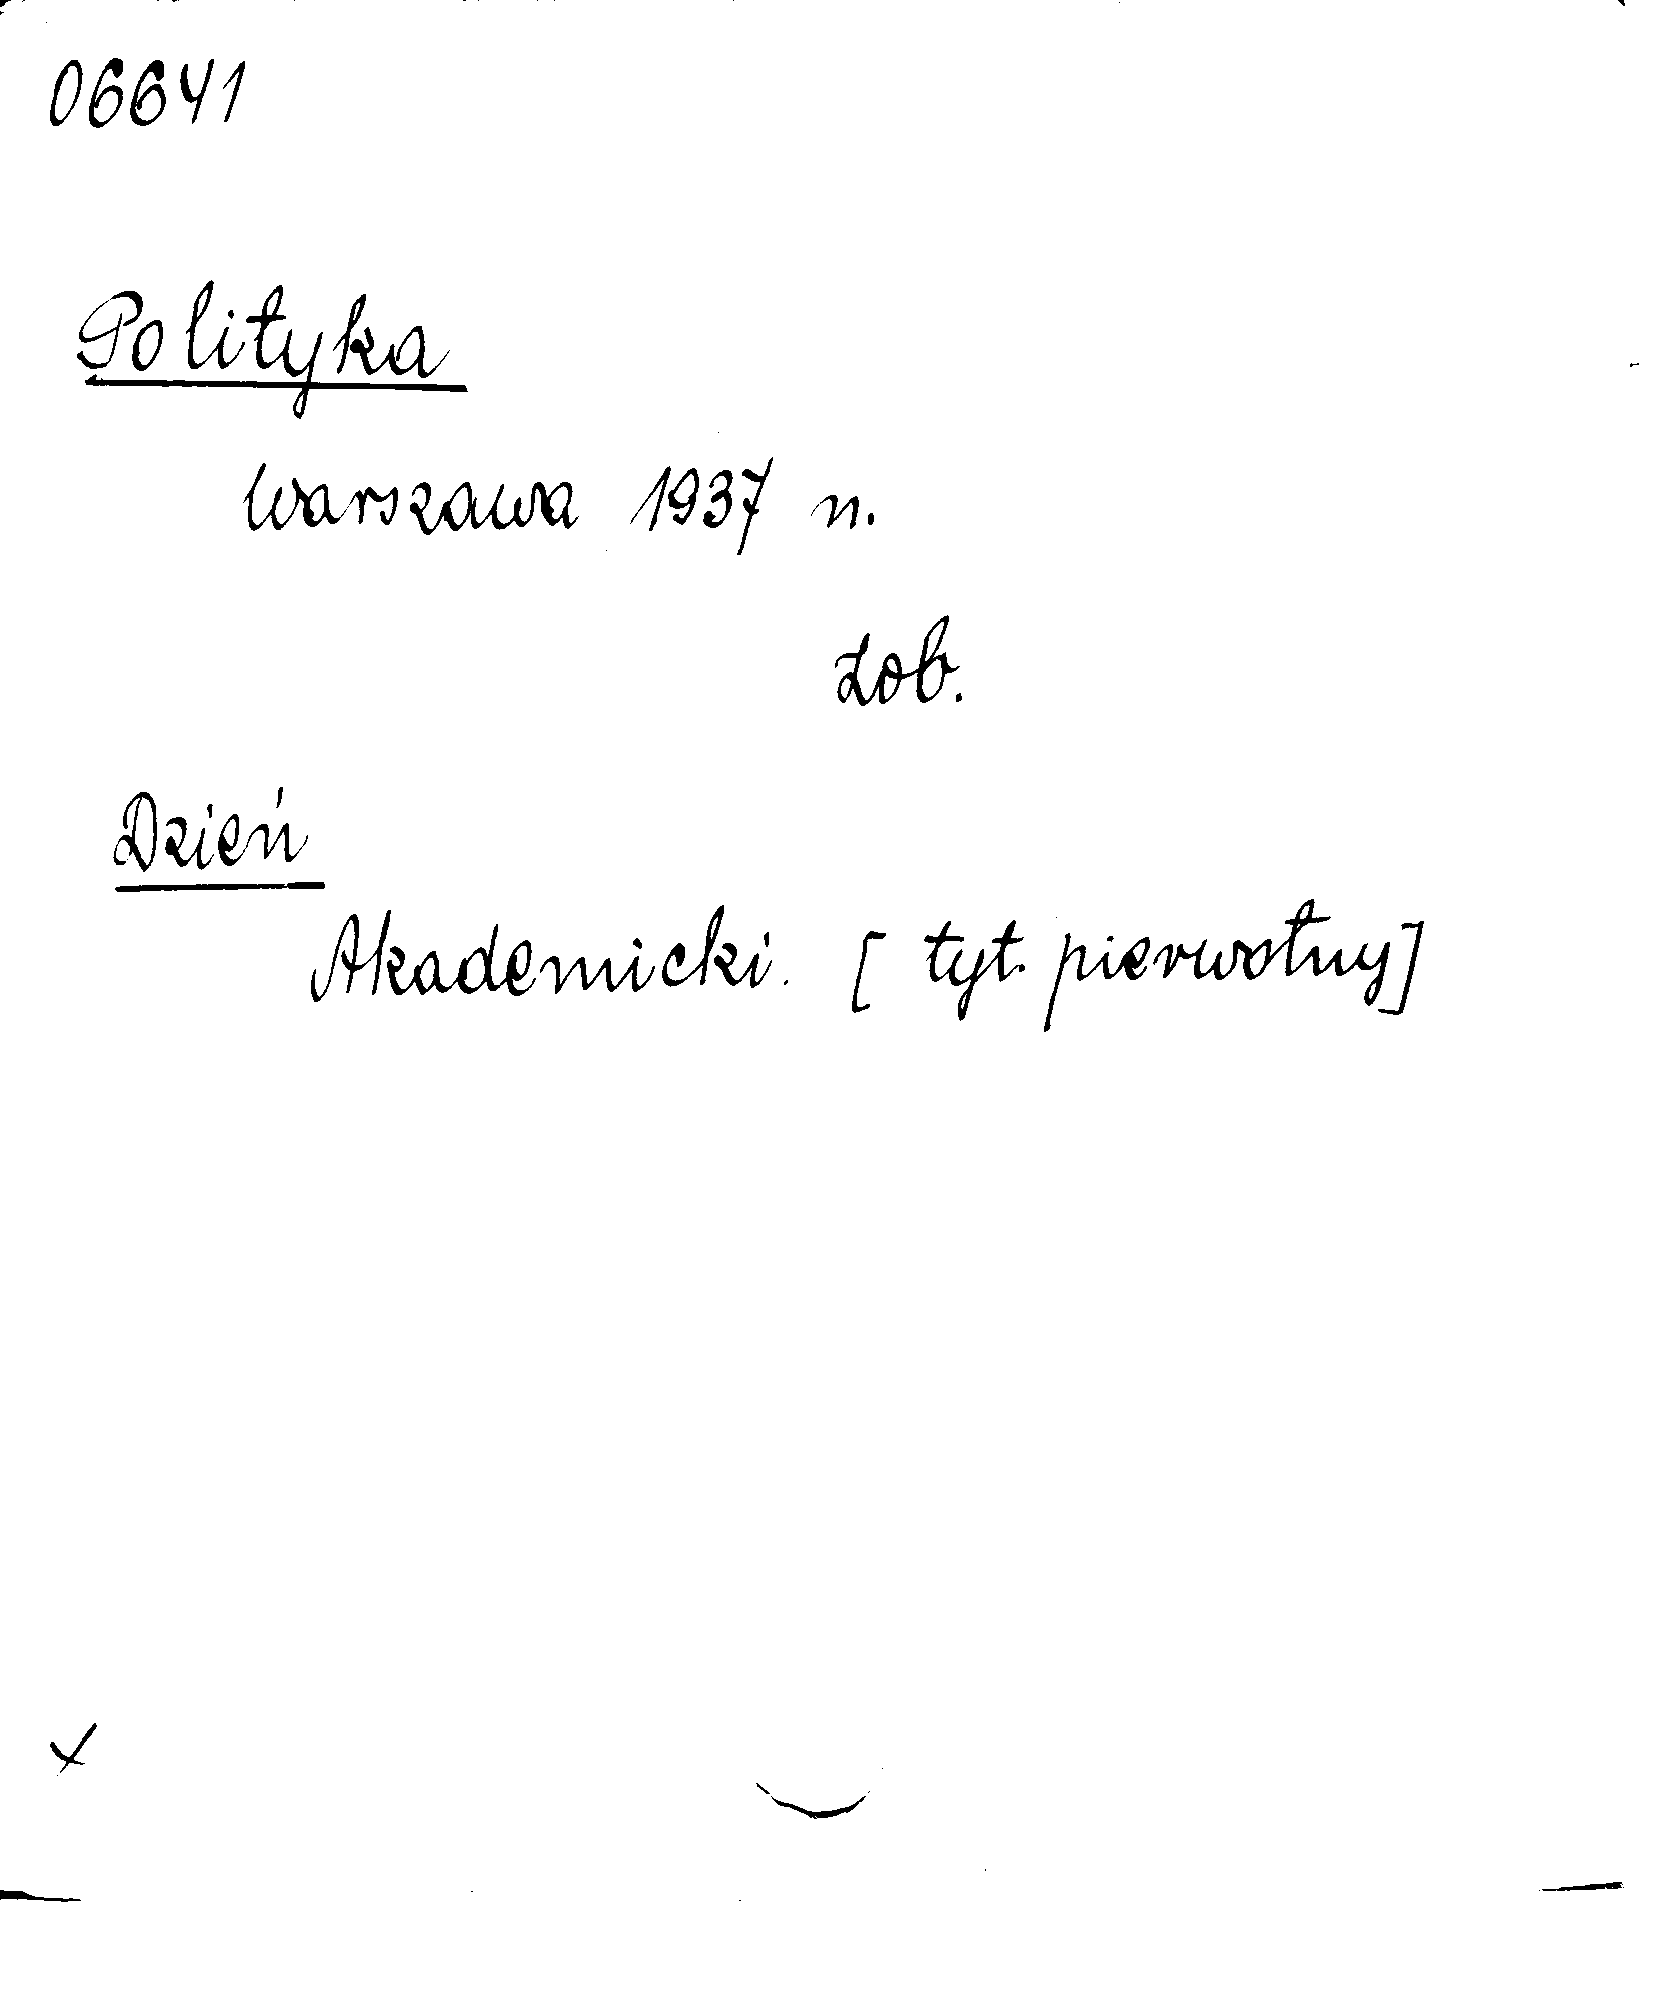 06641
Polityka
Warszawa 1937 n.
Zob.
Dzień
Akademicki. [tyt. pierwotny]